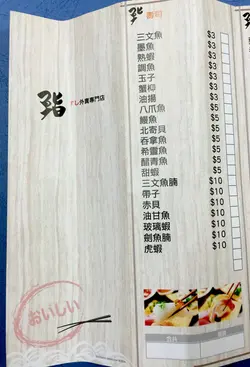 鮨
すし外賣專門店
おいしい
鮨 壽司
三文魚 $3
墨魚 $3
熟蝦 $3
鯛魚 $3
玉子 $3
蟹柳 $3
油揚 $3
八爪魚 $5
鰻魚 $5
北寄貝 $5
吞拿魚 $5
希靈魚 $5
醋青魚 $5
甜蝦 $5
三文魚腩 $10
帶子 $10
赤貝 $10
油甘魚 $10
玻璃蝦 $10
劍魚腩 $10
虎蝦 $10